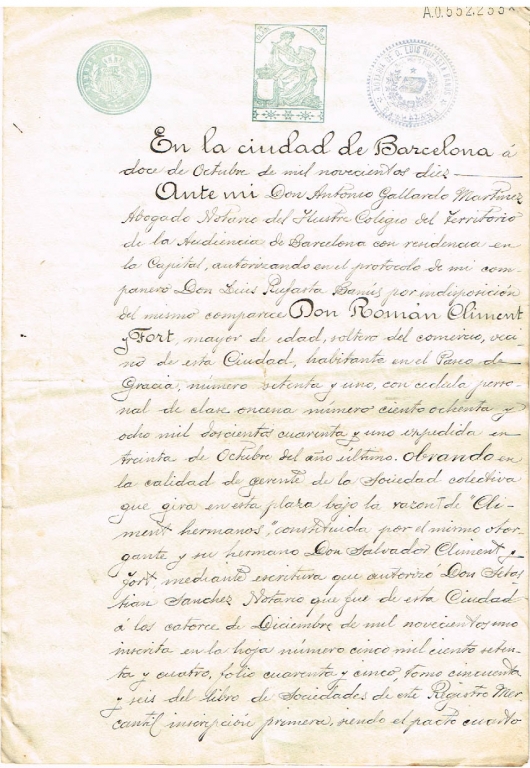 En la ciudad de Barcelona á
doce de Octubre de mil novecientos diez
Ante mi Don Antonio Gallardo Martinez
Abogado Notario del Ilustre Colegio del Territorio
de la Audiencia de Barcelona con residencia en
la Capital, autorizando en el protocolo de mi com-
pañero Don Luis Rufasta Banús por indisposición
del mismo comparece Don Román Climent
y Fort, mayor de edad, soltero del comercio, veci-
no de esta Ciudad, habitante en el Paseo de
Gracia, número setenta y uno, con cedula perso-
nal de clase oncena número ciento ochenta y
ocho mil doscientos cuarenta y uno expedida en
treinta de Octubre del año último. Obrando en
la calidad de gerente de la Sociedad colectiva
que gira en esta plaza bajo la razon de "Cli-
ment hermanos," constituida por el mismo otor-
gante y su hermano Don Salvador Climent y
Fort mediante escritura que autorizó Don Sebas
tian Sanchez Notario que fue de esta Ciudad
á los catorce de Diciembre de mil novecientos uno
inscrita en la hoja número cinco mil ciento seten-
ta y cuatro, folio cuarenta y cinco, tomo cincuenta
y seis del libro de Sociedades de este Registro Mer-
cantil inscripción primera, siendo el pacto cuarto